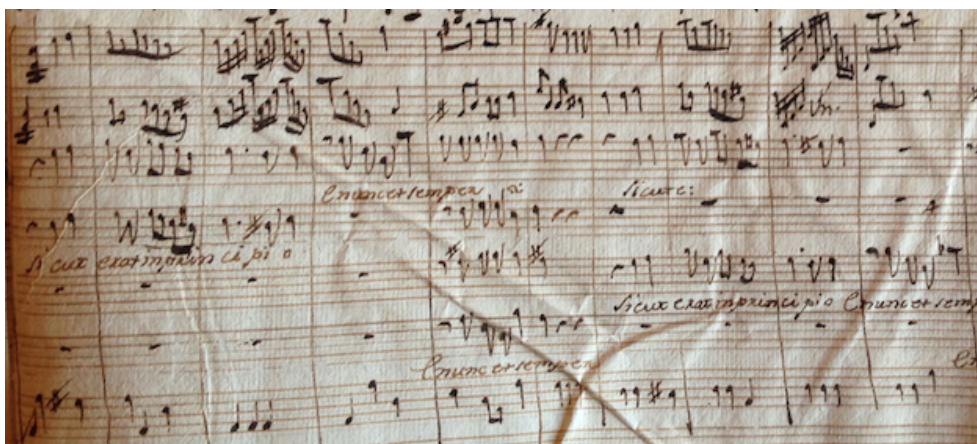 Enuncetsemper
Sicute:
Sicut eratinprincipio
Sicut eratinprincipio Enuncetsemp
Enuncetsemper